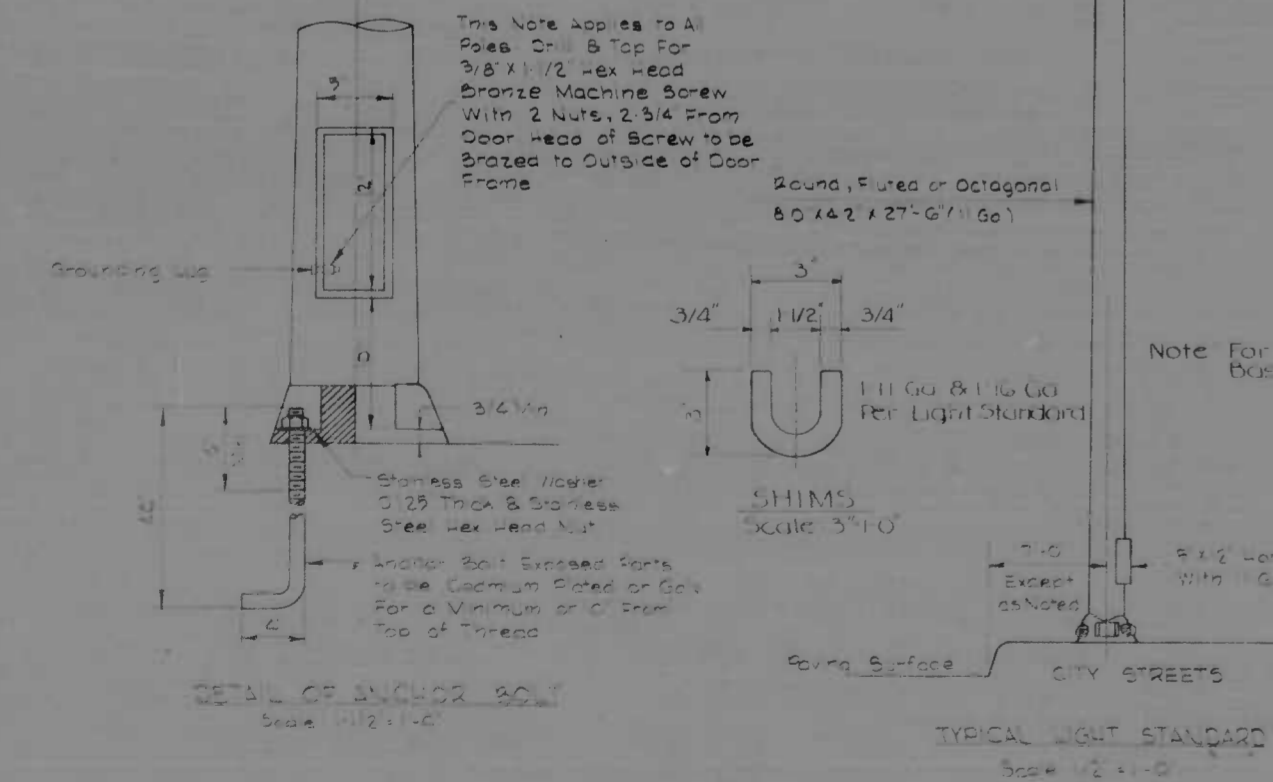 This Note Applies to All
Poles Drill & Tap For
3/8" X 1-1/2" Hex Head
Bronze Machine Screw
With 2 Nuts, 2-3/4" From
Door Head of Screw to be
Brazed to Outside of Door
Frame
Grounding Lug
3/4" Min
Stainless Steel Washer
0.125 Thick & Stainless
Steel Hex Head Nut
Anchor Bolt Exposed Parts
to be Cadmium Plated or Galv
For a Minimum of From
Top of Thread
4"
DETAIL OF ANCHOR BOLT
Scale 1-1/2" = 1'-0"
Round, Fluted or Octagonal
8.0 X 4.2 X 27'-6" (11 Ga)
3"
3/4" 1 1/2" 3/4"
3"
1-11 Ga & 1-16 Ga
Per Light Standard
SHIMS
Scale 3"=1'-0"
Note For
Except
as Noted
With 11 G
Paving Surface
CITY STREETS
TYPICAL LIGHT STANDARD
Scale 1/2" = 1'-0"